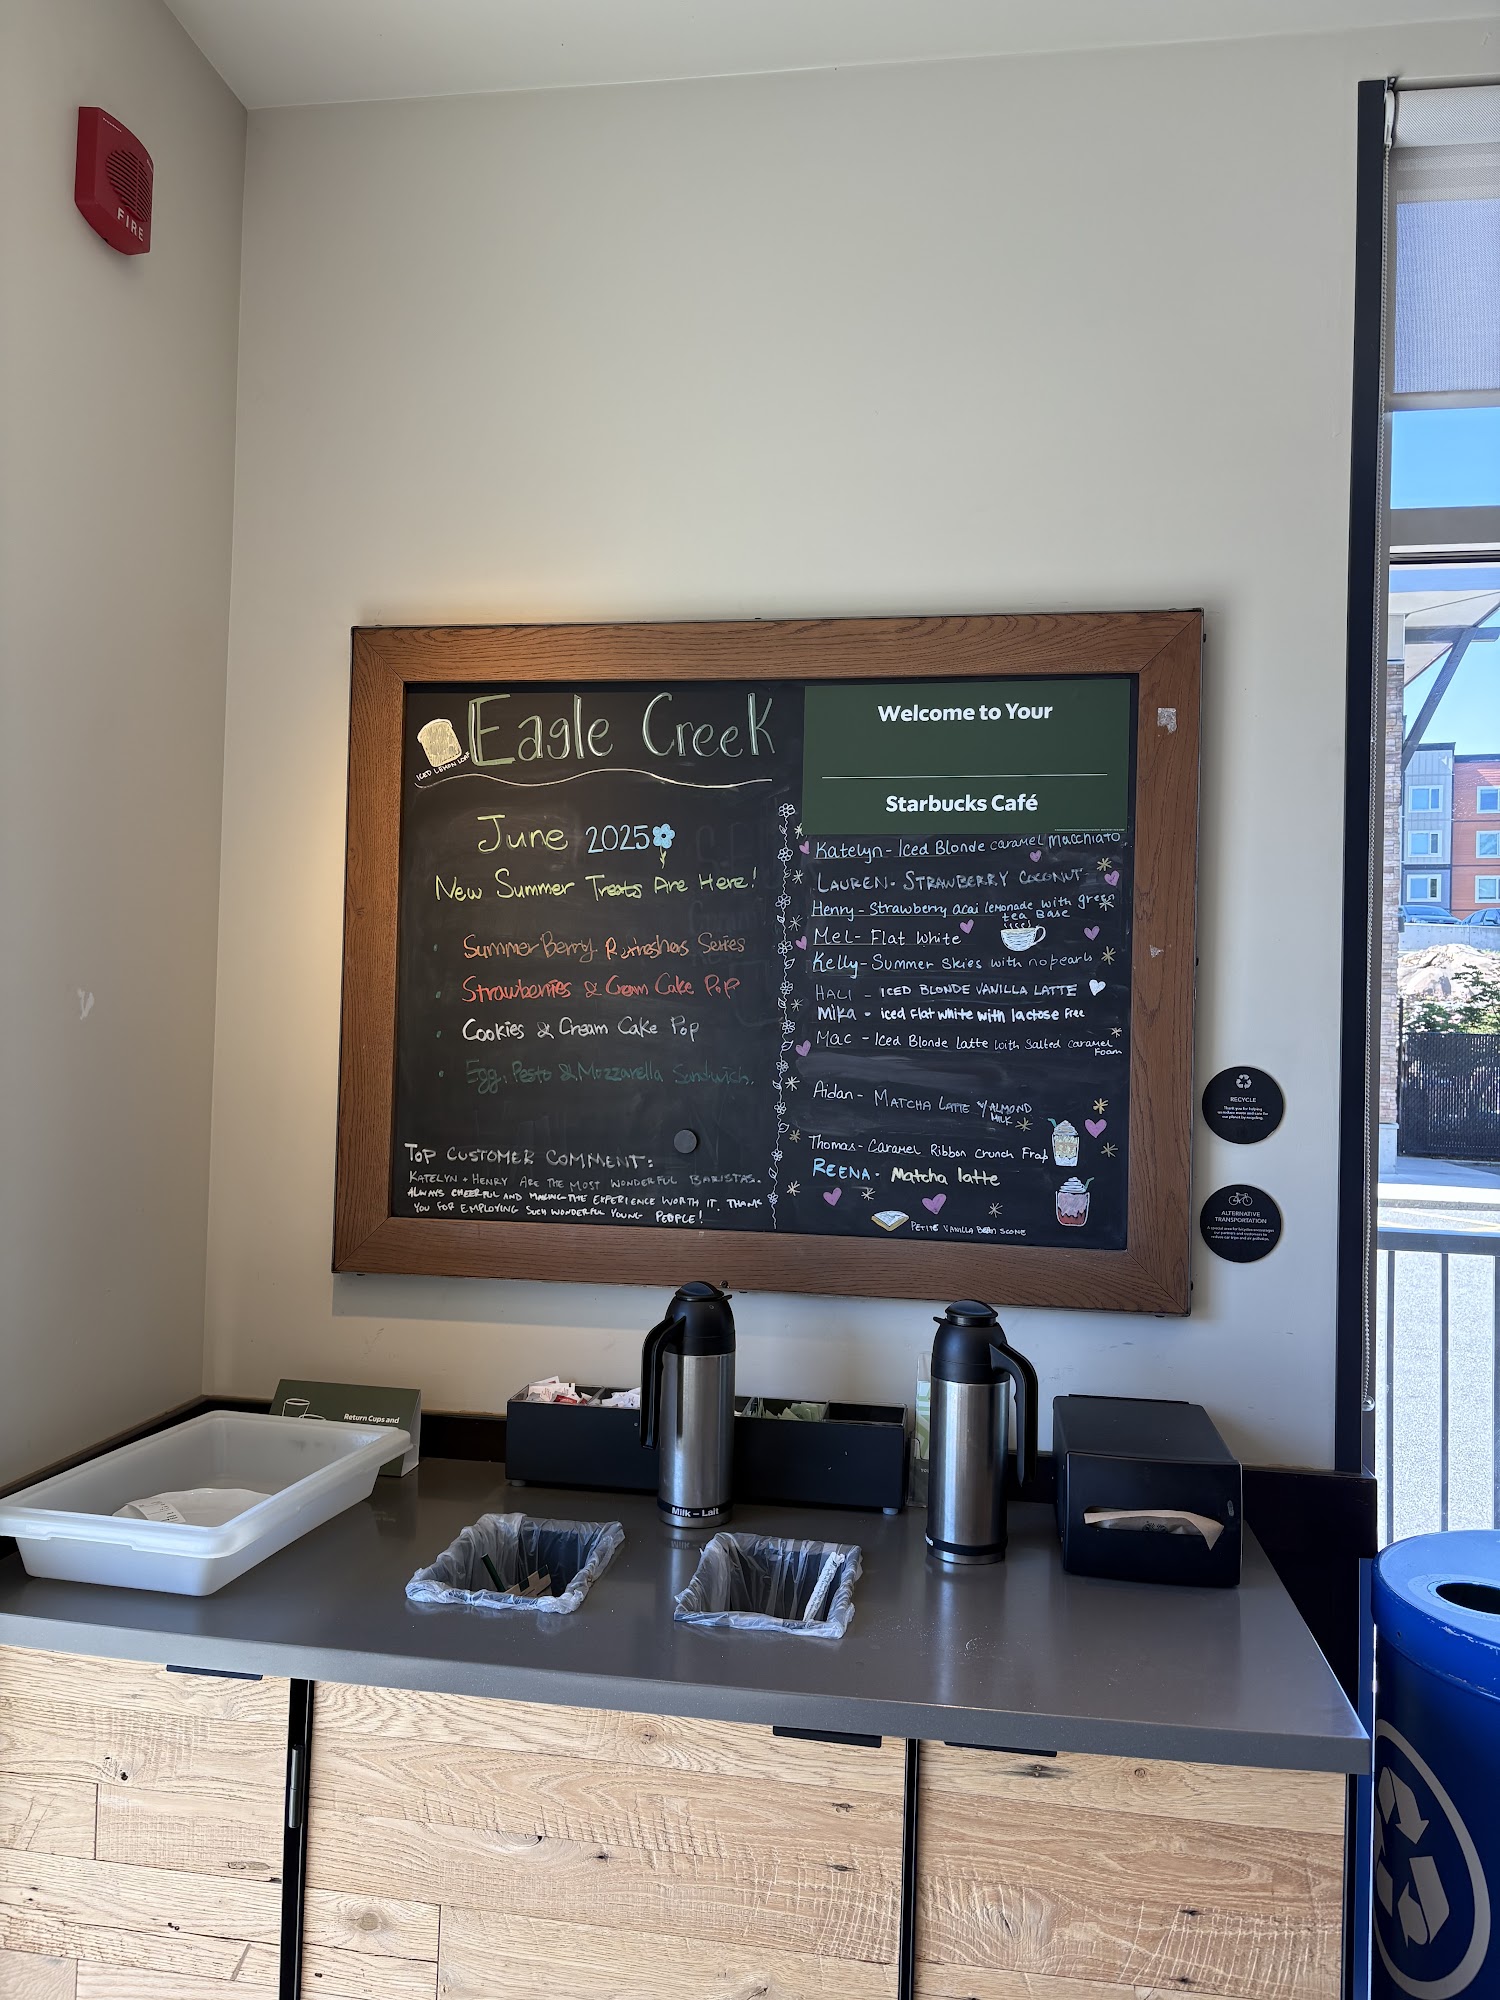 FIRE
Eagle Creek
ICED LEMON LOAF
June 2025
New Summer Treats Are Here!
Summer Berry Refreshers Series
Strawberries & Cream Cake Pop
Cookies & Cream Cake Pop
Egg, Pesto & Mozzarella Sandwich.
TOP CUSTOMER COMMENT:
KATELYN + HENRY ARE THE MOST WONDERFUL BARISTAS.
ALWAYS CHEERFUL AND MAKING THE EXPERIENCE WORTH IT. THANK
YOU FOR EMPLOYING SUCH WONDERFUL YOUNG PEOPLE!
Welcome to Your
Starbucks Café
Katelyn - Iced Blonde caramel Macchiato
LAUREN - STRAWBERRY COCONUT
Henry - Strawberry acai lemonade with green
tea Base
Mel - Flat White
Kelly - Summer Skies with no pearls
HALI - ICED BLONDE VANILLA LATTE
Mika - iced flat white with lactose free
Mac - Iced Blonde Latte with Salted Caramel
Foam
Aidan - MATCHA LATTE W/ ALMOND
MILK
Thomas - Caramel Ribbon Crunch Frap
REENA - Matcha latte
PETITE VANILLA BEAN SCONE
RECYCLE
ALTERNATIVE
TRANSPORTATION
Return Cups and
Milk – Lait